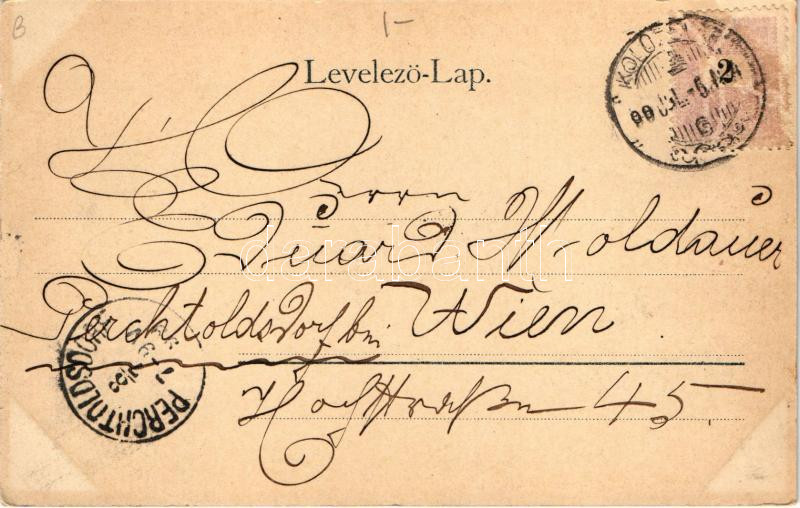 B
1-
Levelezö-Lap.
2
Herrn
Eduard Moldauer
Perchtoldsdorf bei Wien
Hochstraße 45.
PERCHTOLDSDORF
darabanth